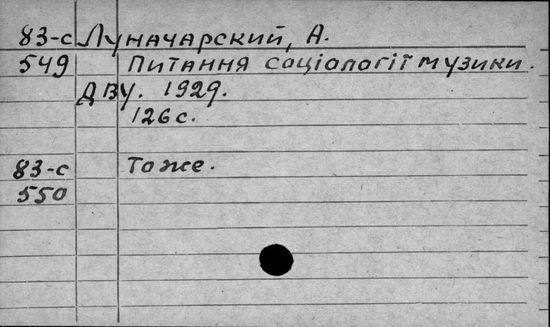 83-с Луначарский, А.
549 Питання соціології музики.
ДВУ. 1929.
126 с.
83-с Тоже.
550